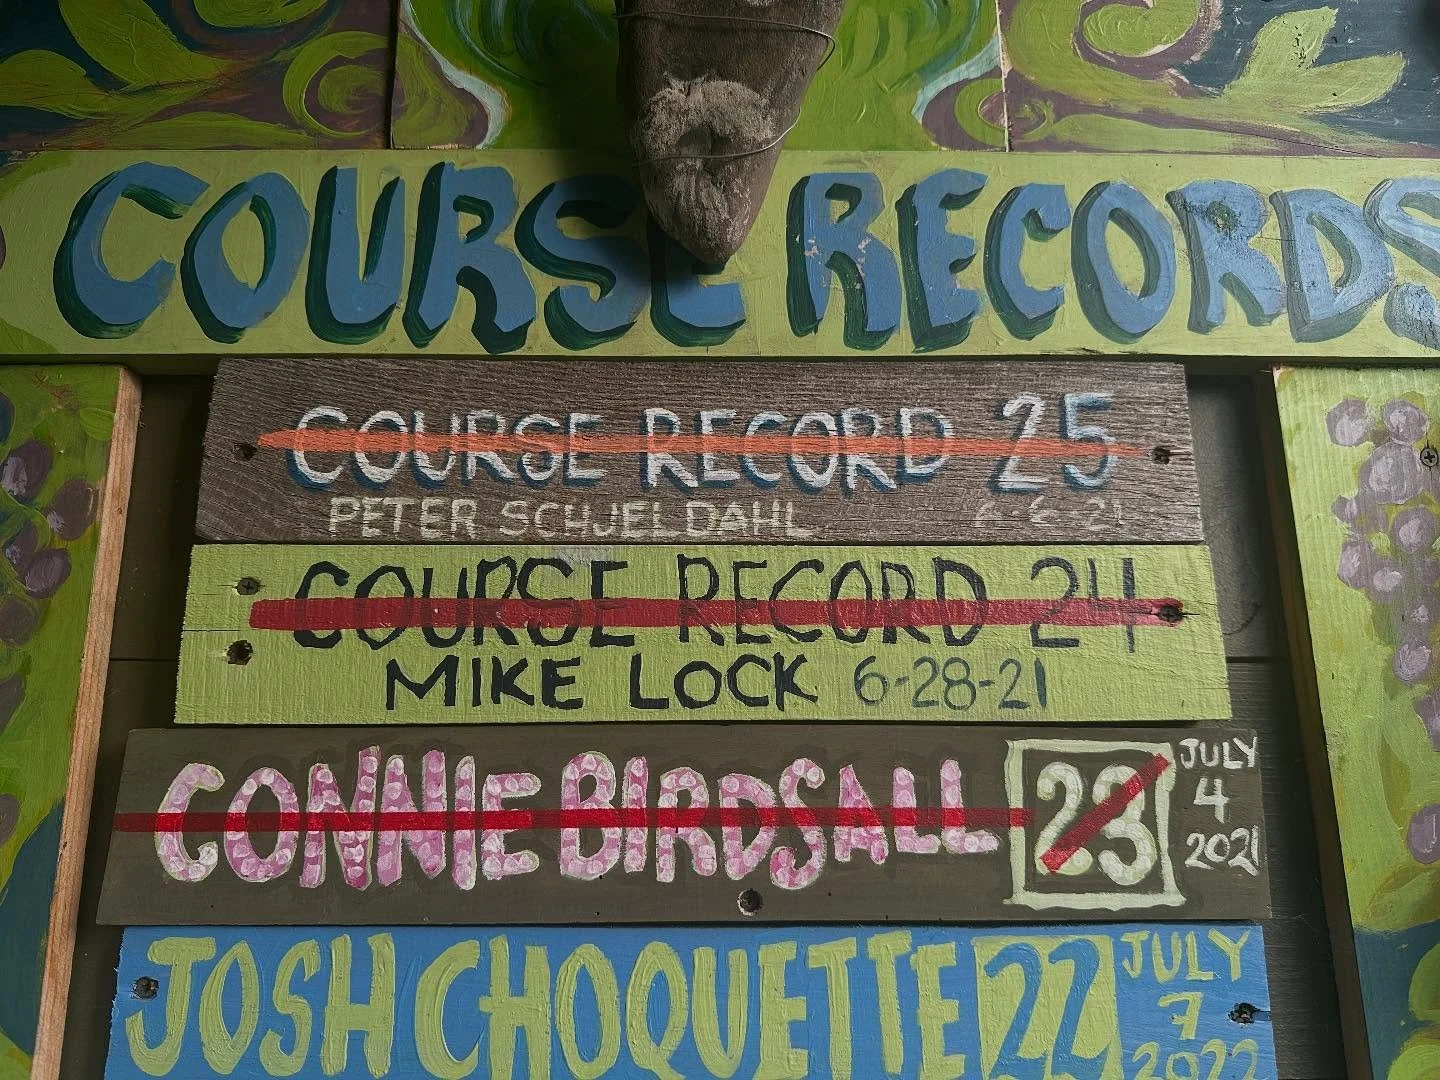 COURSE RECORDS
COURSE RECORD 25
PETER SCHJELDAHL 6-6-21
COURSE RECORD 24
MIKE LOCK 6-28-21
CONNIE BIRDSALL 23 JULY 4 2021
JOSH CHOQUETTE 22 JULY 7 2022